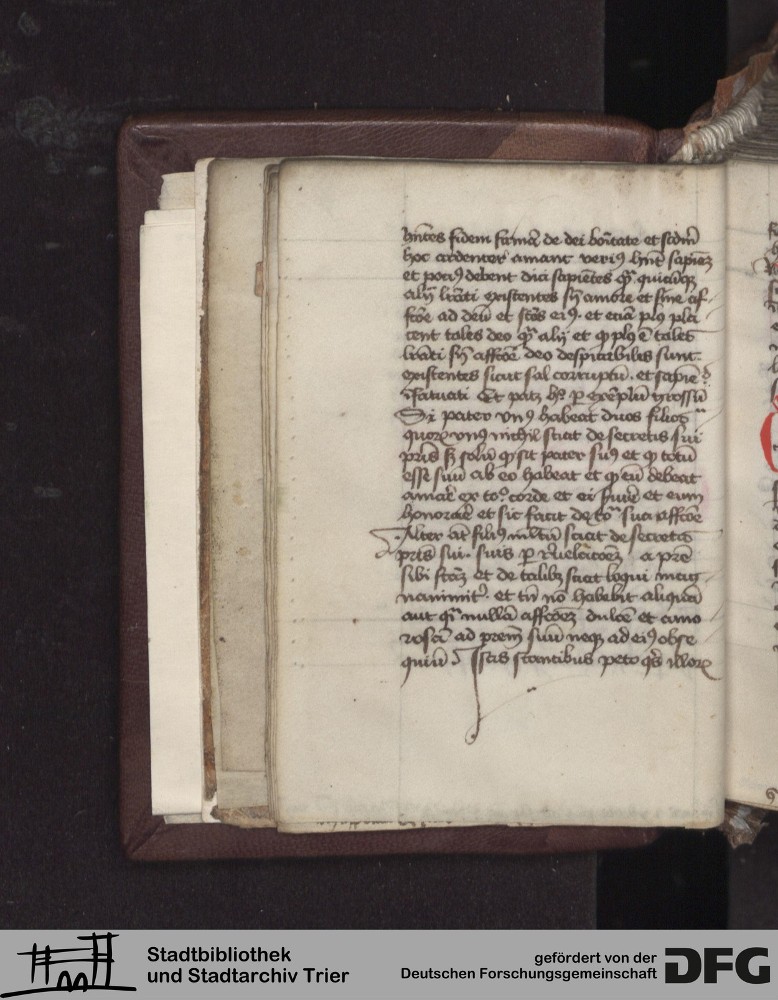 hn̄tes fidem firmā de dei boītate et scdm̄
hoc ardenter amant veriꝰ hn̄t sapiēʒ
et potiꝰ debent dici sapiētes qͣ quicūqʒ
alij lr̄ati existentes sn̄ amore et sine af-
fcōe ad deū et sctōs eiꝰ · et eciā plꝰ pla
cent tales deo qͣ alij et ꝙ plꝰ ē tales
lr̄ati sn̄ affcōe deo despicabiles sunt
existentes sicut sal corruptū · et sapiē
īfatuati Et patʒ h̊ ꝑ exēplū grossū
Si pater vnꝰ habeat duos filios
quoꝝ vnꝰ nichil sciat de secretis sui
pr̄is sʒ solū ꝙ sit pater suꝰ et ꝙ totū
esse suū ab eo habeat et ꝙ eū debeat
amare ex toͦ corde et ei īuire et eum
honorare et sic facit de toͣ sua affcōe
Alter āt filiꝰ multū sciat de secretis
pr̄is sui · suis ꝑ reuelacōeʒ a pr̄e
sibi fcāʒ et de talibʒ sciat loqui mag
nanimit᷑ · et tn̄ nō habebit aliquā
aut qͣ nullā affcōeʒ dulcē et amo
rosā ad pr̄em suū neqʒ ad eiꝰ obse
quiū Istis stantibus peto qͥs illoꝝ
Stadtbibliothek
und Stadtarchiv Trier
gefördert von der
Deutschen Forschungsgemeinschaft
DFG